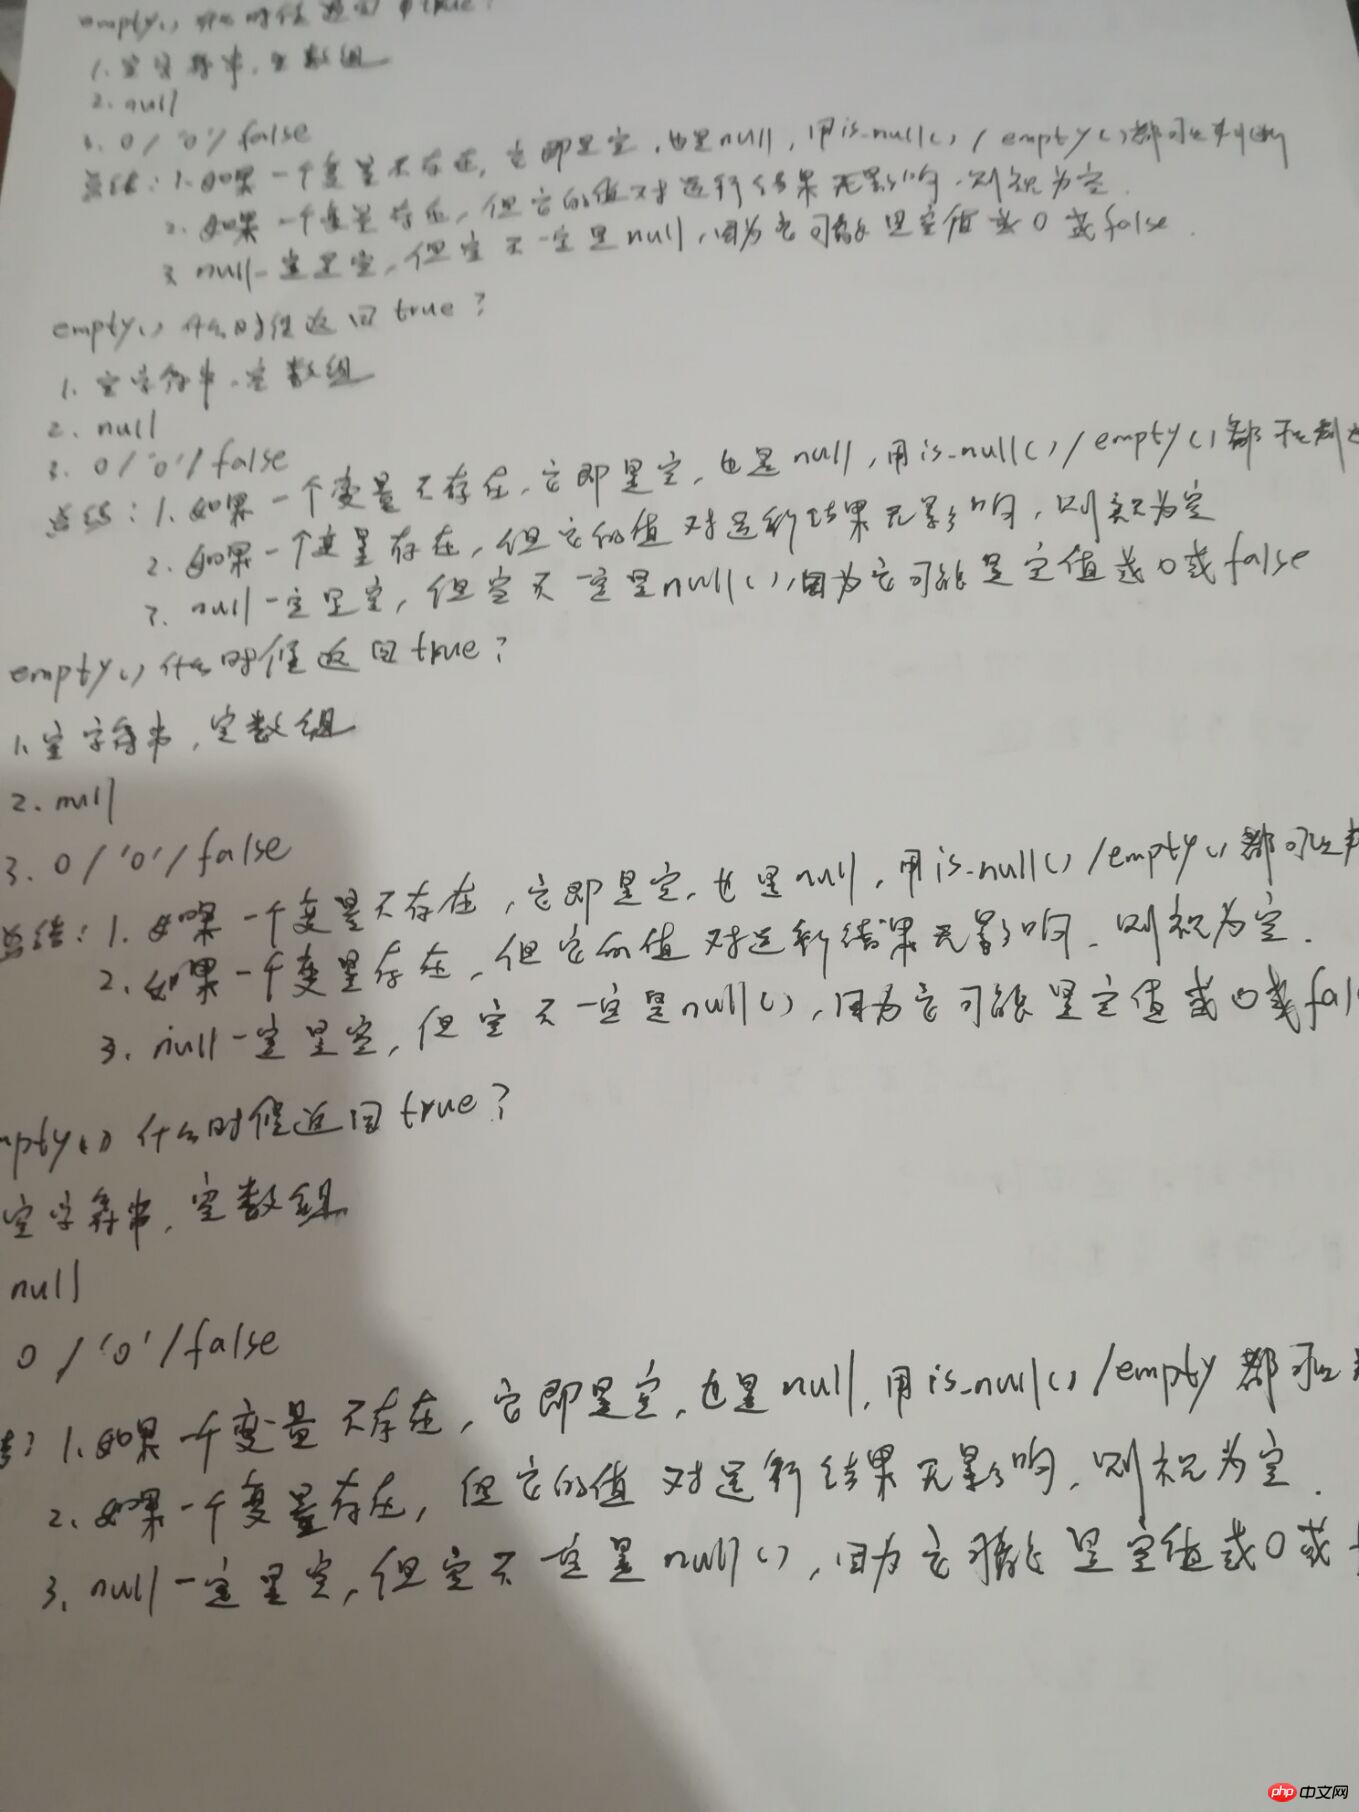 empty() 什么时候返回 true?
1. 空字符串、空数组
2. null
3. 0 / '0' / false
总结: 1. 如果一个变量不存在, 它即是空, 也是null, 用is_null() / empty()都可以判断
2. 如果一个变量存在, 但它的值对运行结果无影响, 则视为空.
3. null一定是空, 但空不一定是null, 因为它可能是空值或0或false.
empty() 什么时候返回 true?
1. 空字符串、空数组
2. null
3. 0 / '0' / false
总结: 1. 如果一个变量不存在, 它即是空, 也是null, 用is_null() / empty()都可以判
2. 如果一个变量存在, 但它的值对运行结果无影响, 则视为空
3. null一定是空, 但空不一定是null(), 因为它可能是空值或0或false
empty() 什么时候返回true?
1. 空字符串, 空数组
2. null
3. 0 / '0' / false
总结: 1. 如果一个变量不存在, 它即是空, 也是null, 用is_null() / empty()都可以
2. 如果一个变量存在, 但它的值对运行结果无影响, 则视为空.
3. null一定是空, 但空不一定是null(), 因为它可能是空值或0或fal
mpty() 什么时候返回true?
空字符串, 空数组
null
0 / '0' / false
1. 如果一个变量不存在, 它即是空, 也是null, 用is_null() / empty 都可以
2. 如果一个变量存在, 但它的值对运行结果无影响, 则视为空.
3. null一定是空, 但空不一定是null(), 因为它可能是空值或0或
php 中文网